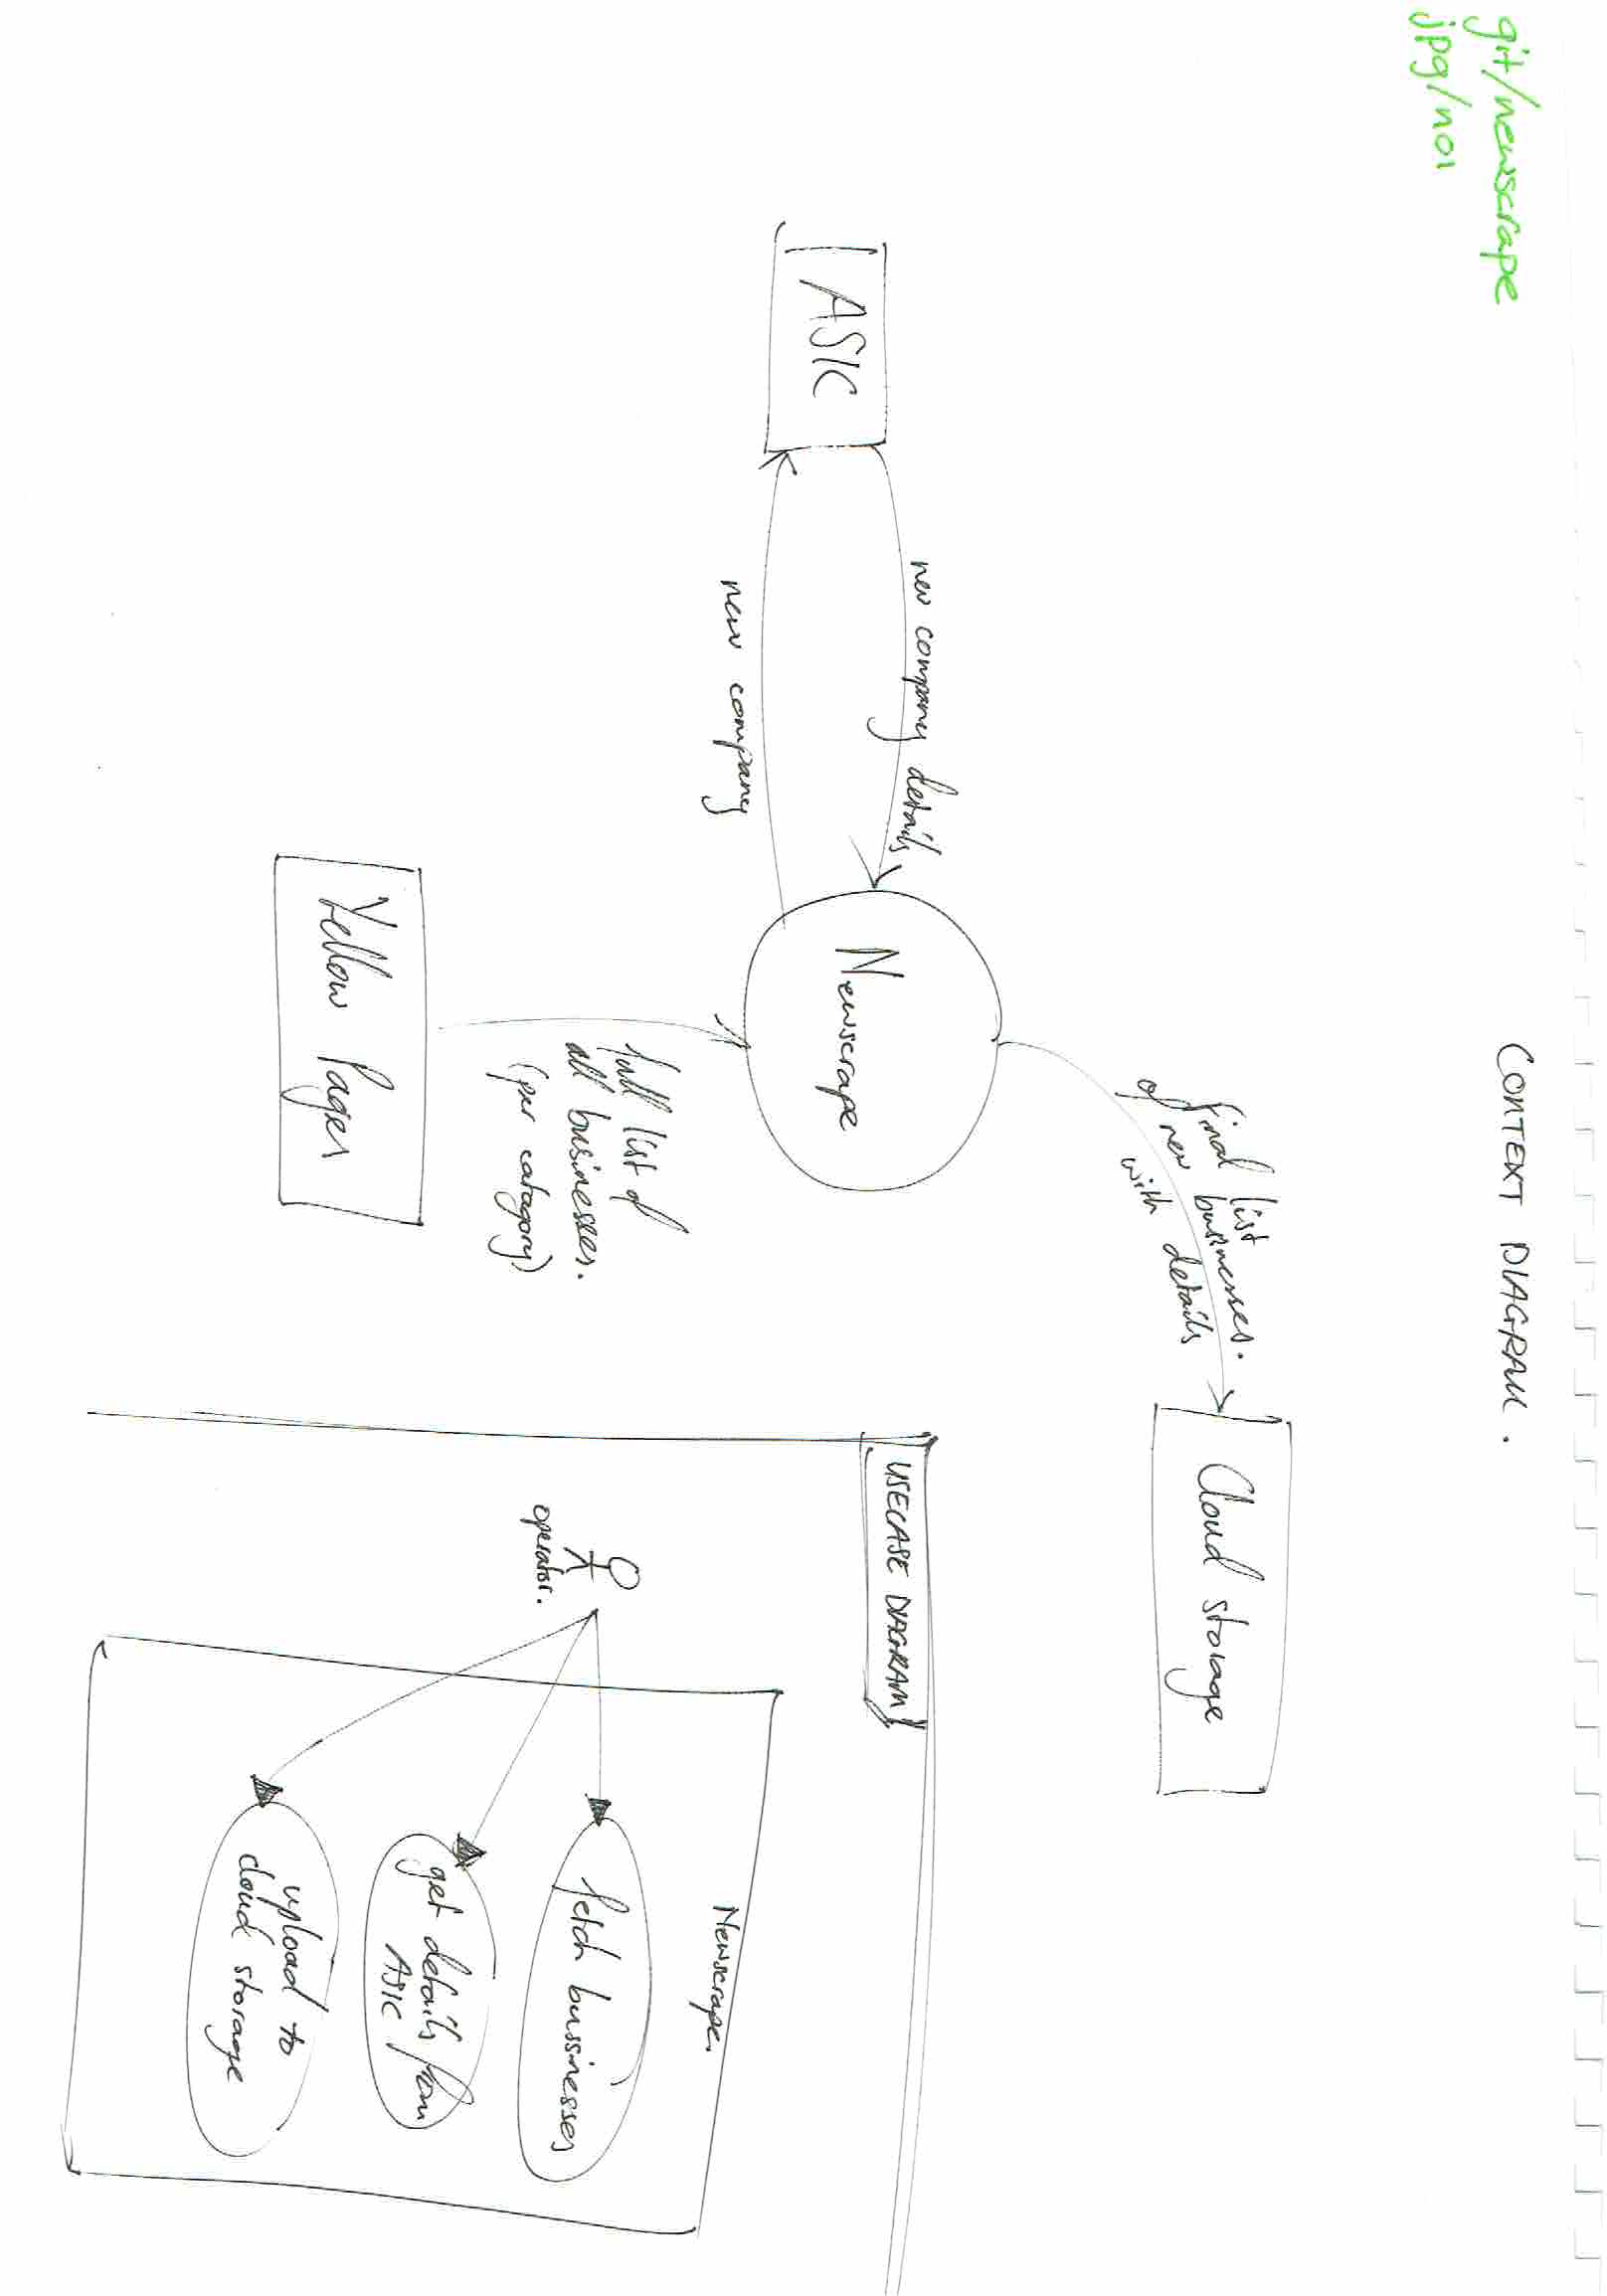 git/newscrape
jpg/no1
CONTEXT DIAGRAM.
final list
of new businesses.
with details
Cloud storage
new company details
ASIC
Newscrape
new company
full list of
all businesses.
(per catagory)
Yellow Pages
USECASE DIAGRAM
Newscrape.
operator.
fetch bussinesses
get details from
ASIC
upload to
cloud storage